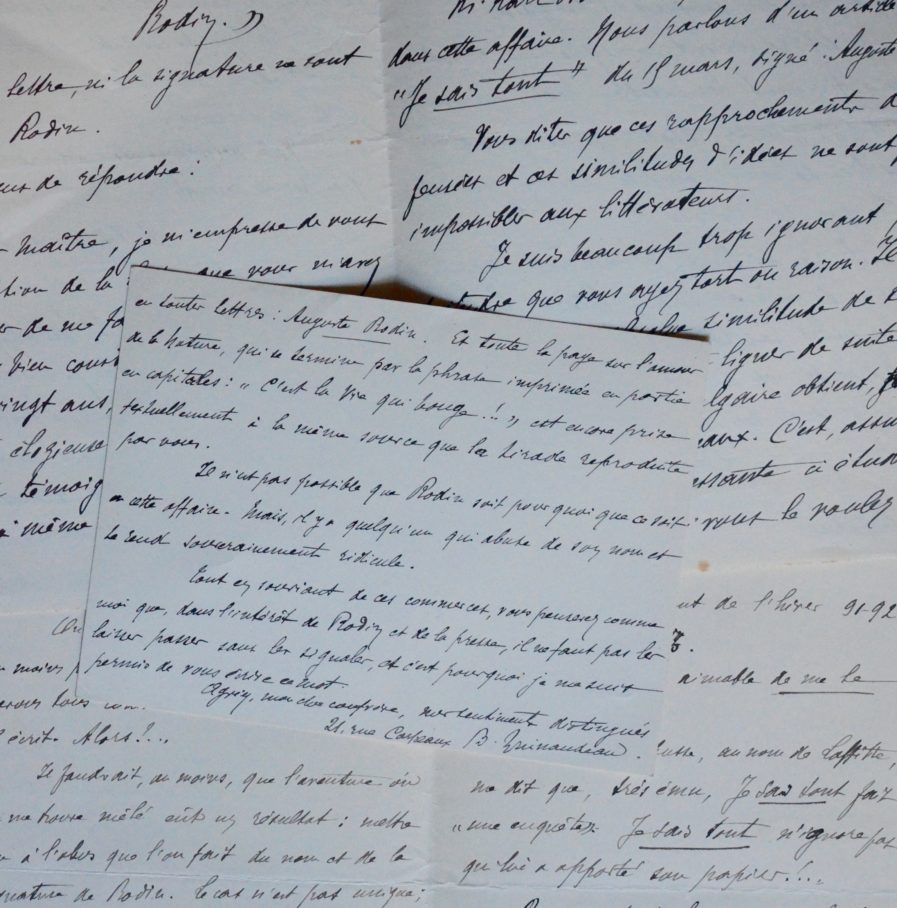 Rodin. »
lettre, ni la signature ne sont
Rodin.
de répondre :
Maître, je m'empresse de vous
que vous m'avez
de me
bien
vingt ans,
élogieuse
témoig
même
dans cette affaire. Nous parlons d'un article
"Je sais tout" du 15 mars, signé : Auguste
Vous dites que ces rapprochements
pensées et ces similitudes d'idées ne sont
impossibles aux littérateurs.
Je suis beaucoup trop ignorant
que vous ayez tort ou raison.
similitude de
ligner de suite
obtient,
C'est, assu
à étud
vous le voulez
en toutes lettres : Auguste Rodin. Et toute la page sur l'amour
de la Nature, qui se termine par la phrase imprimée en partie
en capitales : « C'est la Vie qui bouge !! », est encore prise
textuellement à la même source que la tirade reproduite
par vous.
Il n'est pas possible que Rodin soit pour quoi que ce soit
en cette affaire. Mais, il y a quelqu'un qui abuse de son nom et
le rend souverainement ridicule.
Tout en souriant de ces commerces, vous penserez comme
moi que, dans l'intérêt de Rodin et de la presse, il ne faut pas les
laisser passer sans les signaler, et c'est pourquoi je me suis
permis de vous écrire ce mot.
Agréez, mon cher confrère, mes sentiments distingués
21, rue Carpeaux B. Guinaudeau.
moins
tous
écrit. Alors ?..
Il faudrait, au moins, que l'aventure où
me trouve mêlé eût un résultat : mettre
à l'abus que l'on fait du nom et de la
signature de Rodin. Le cas n'est pas unique ;
de l'hiver 91-92
aimable de me le
au nom de Laffitte,
me dit que, très ému, Je sais tout fait
"une enquête". Je sais tout n'ignore pas
qui lui a apporté son papier !...